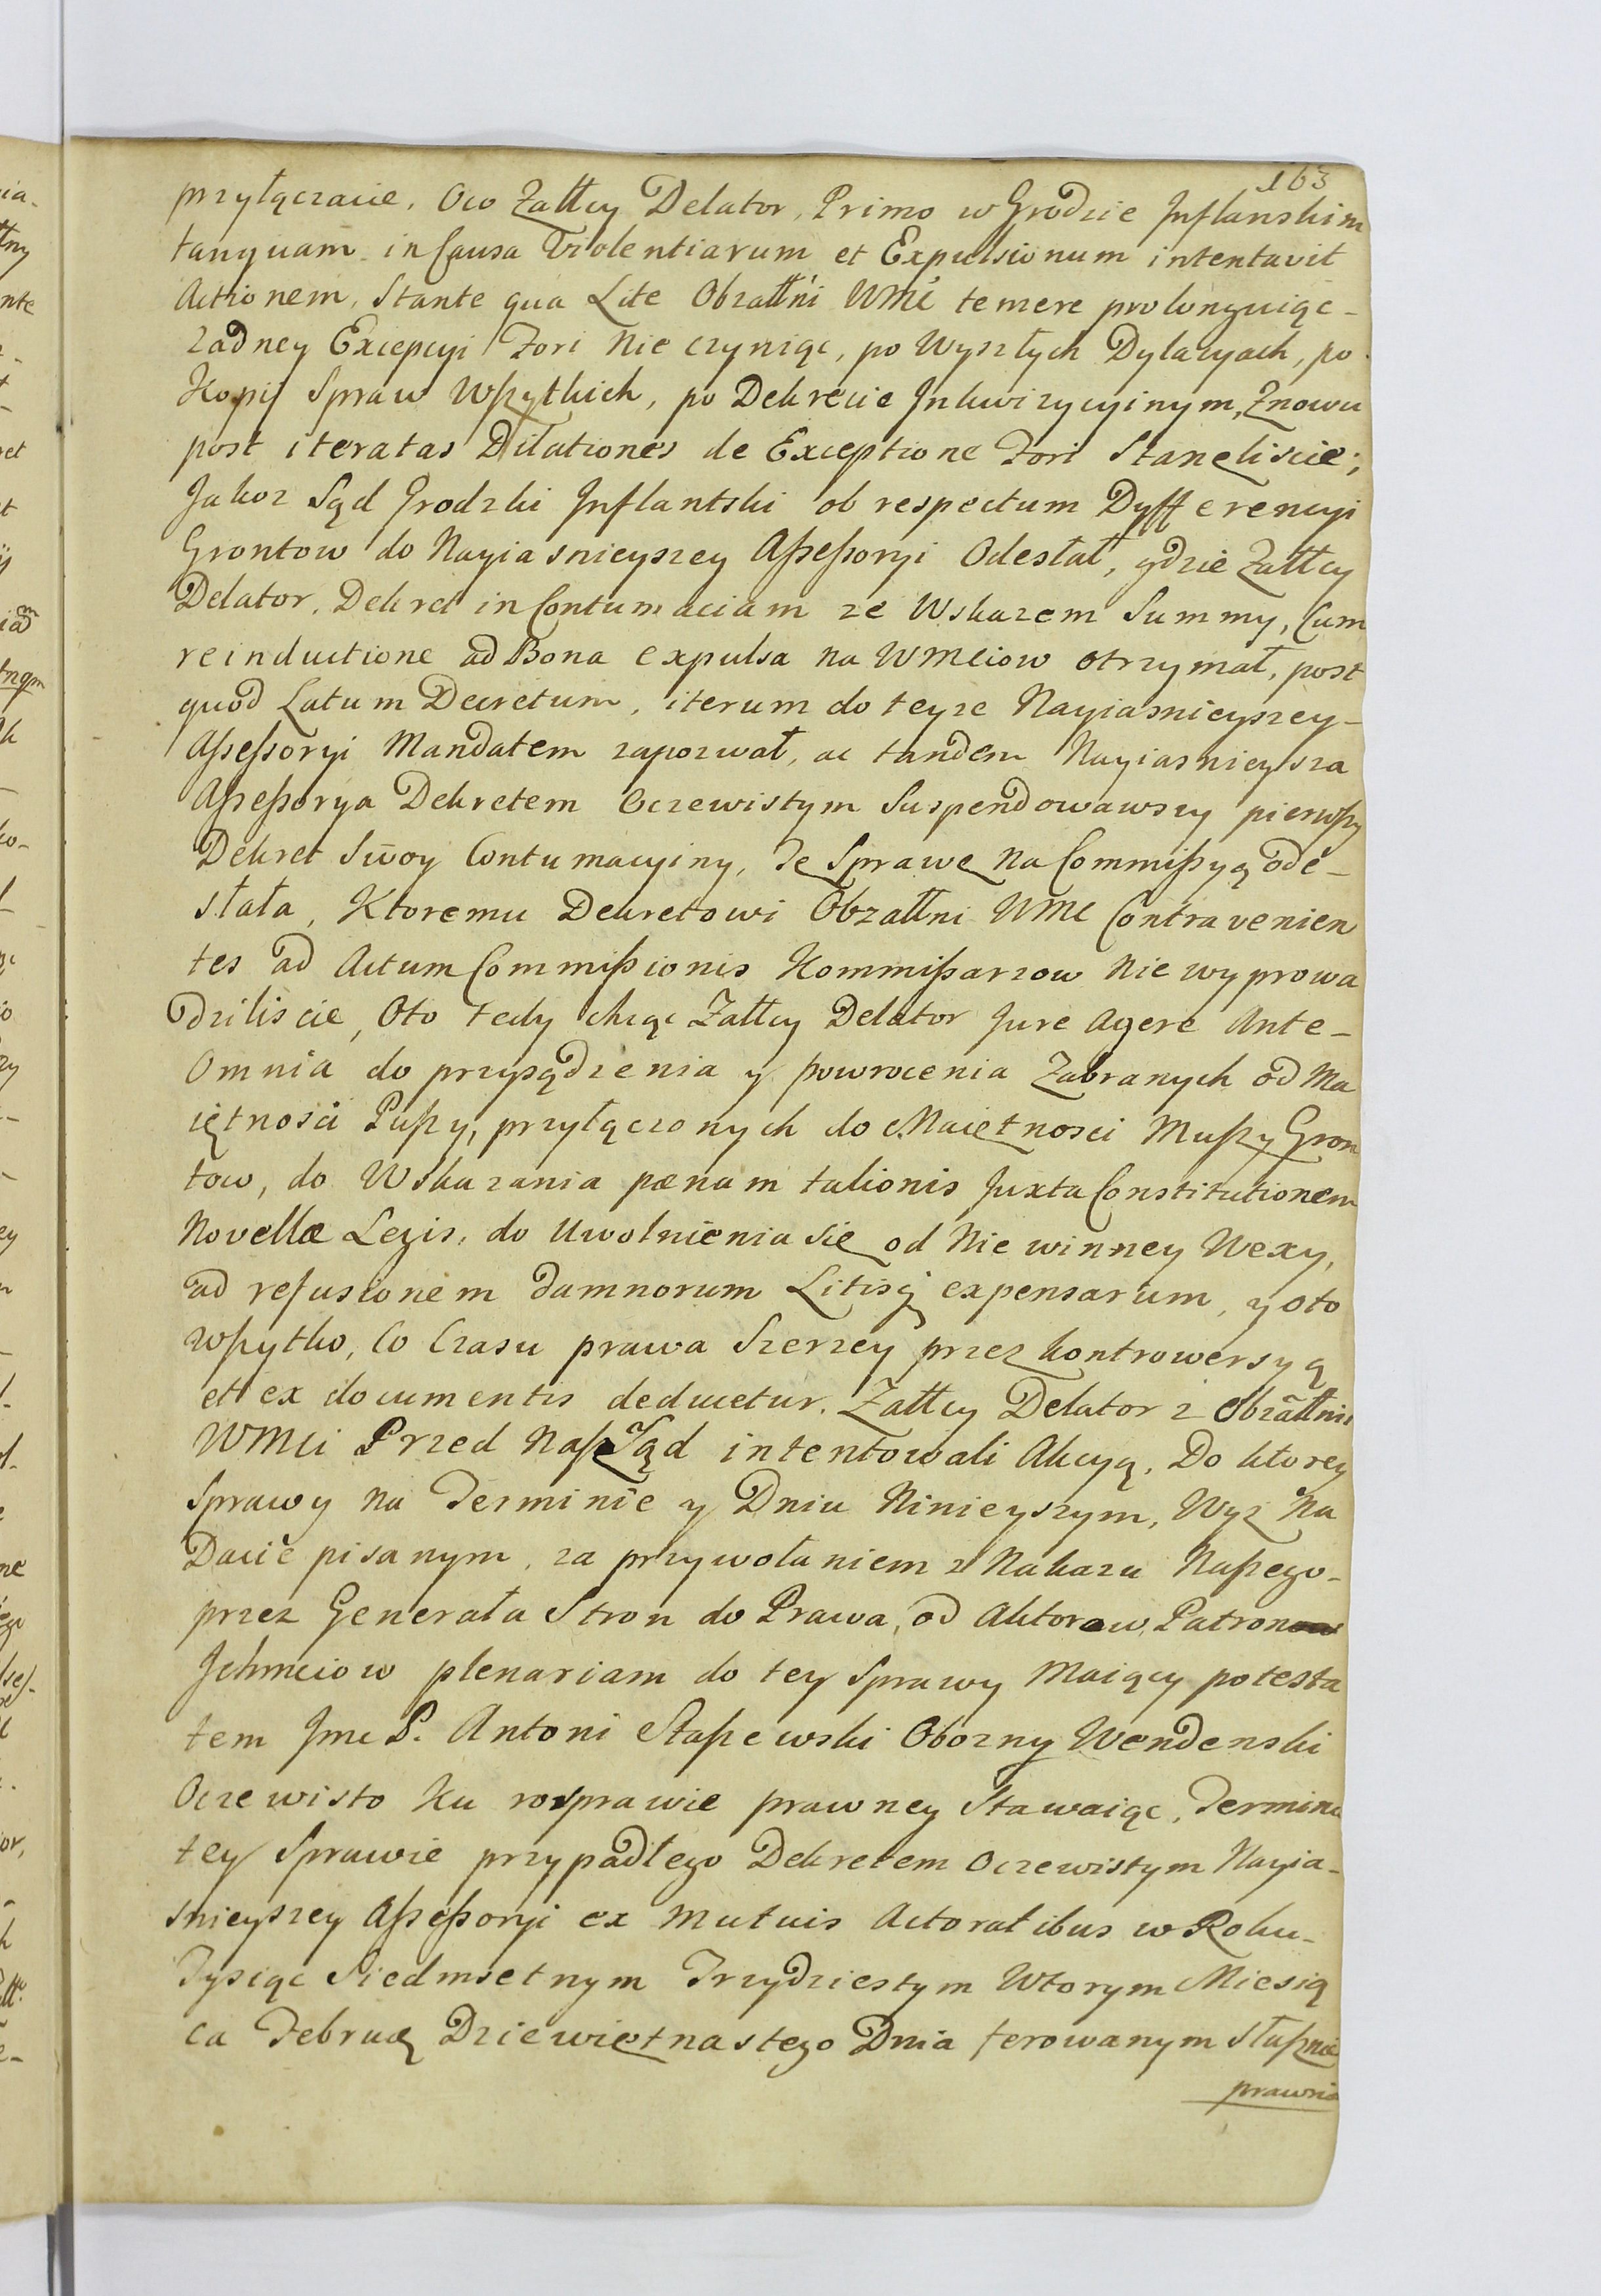 163
przyłączacie, Oco Załłcy Delator, Primo w Grodzie Inflanskim
tanquam in Causa Violentiarum et Expulsionum intentavit
Actionem, Stante qua Lite Obzałłni WMć temere prolonguiąc-
Zadney Excepcyi Fori Nie czyniąc, po Wyszłych Dylacyach, po
Kopij Spraw Wszytkich, po Dekrecie Inkwizycyinym, Znowu
post iteratas Dilationes de Exceptione Fori Stanęliscie;
Jakoz Sąd Grodzki Inflantski ob respectum Dyfferencyi
Grontow do Nayiasnieyszey Assessoryi Odesłał, gdzie Załłcy
Delator, Dekret in Contumaciam ze Wskazem Summy, Cum
reinductione ad Bona expulsa na WMciow otrzymał, post
quod Latum Decretum, iterum do teyze Nayiasnieyszey-
Assessoryi Mandatem zapozwał, ac tandem Nayiasnieysza
Assessorya Dekretem Oczewistym Suspendowawszy pierwszy
Dekret Swoy Contumacyiny, Te Sprawę na Commissyą ode-
słała, Ktoremu Dekretowi Obzałłni WMć Contravenien
tes ad Actum Commissionis Kommissarzow Nie wyprowa
dziliscie, Oto tedy chcąc Załłcy Delator Jure Agere Ante-
Omnia do przysądzenia y powrocenia Zabranych od Ma
iętnosci Puszy, przyłączonych do Maiętnosci Muszy Gron
tow, do Wskazania pœnam talionis Juxta Constitutionem
Novellæ Legis, do Uwolnienia się od Nie winney Wexy,
ad refusionem damnorum Litisq expensarum, y oto
wszytko, Co Czasu prawa Szerzey przez kontrowersyą
et ex documentis deducetur. Załłcy Delator z Obżałłni
WMci Przed Nasz Sąd intentowali Akcyą, Do ktorey
Sprawy na Terminie y Dniu Ninieyszym, Wyz Na
Dacie pisanym, za przywołaniem z Nakazu Naszego-
przez Generała Stron do Prawa, od Aktorow, Patron
Ichmciow plenariam do tey Sprawy Maiący potesta
tem Jmc P. Antoni Staszewski Obozny Wendenski
Oczewisto Ku rosprawie prawney Stawaiąc, Terminu
tey Sprawie przypadłego Dekretem Oczewistym Nayia-
snieyszey Assessoryi ex Mutuis Actoratibus w Roku-
Tysiąc Siedmsetnym Trzydziestym Wtorym Miesią
ca Februą Dziewiętnastego Dnia ferowanym słusznie
prawnie